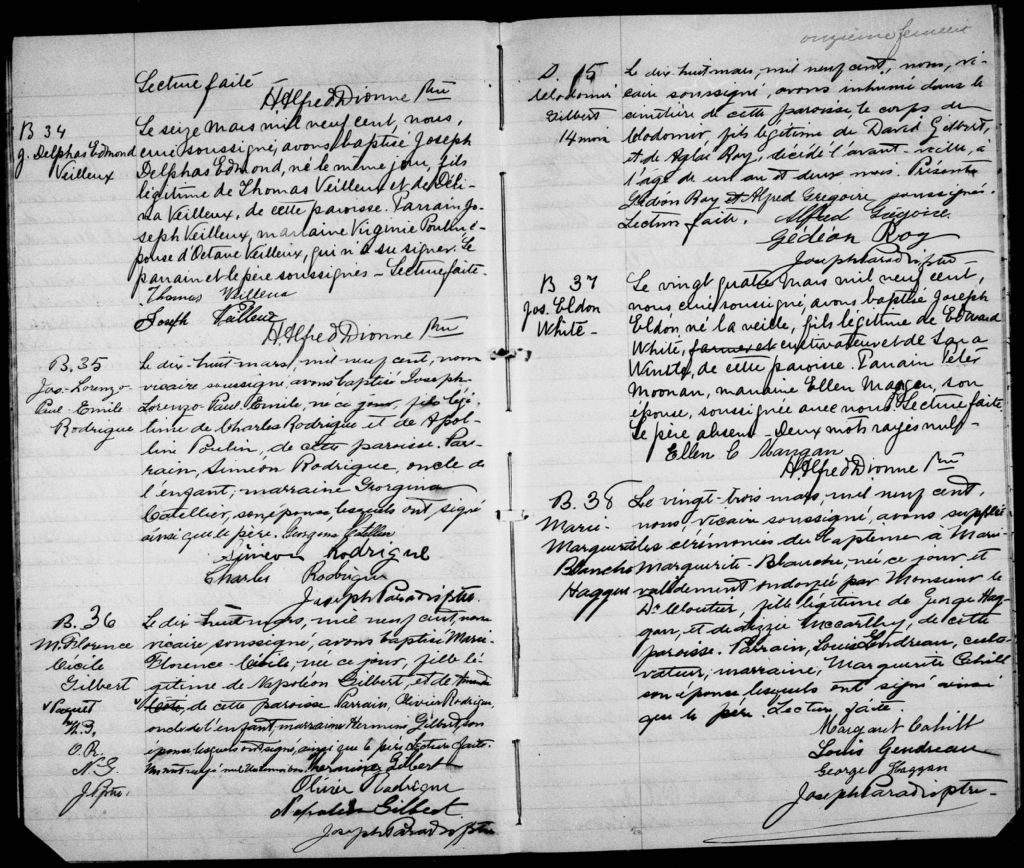 Lecture faite
HAlfred Dionne Ptre
B 34
J. Delphas Edmond
Veilleux
Le seize mars mil neuf cent, nous,
curé soussigné, avons baptisé Joseph
Delphas Edmond, né le même jour, fils
légitime de Thomas Veilleux et de Déli-
na Veilleux, de cette paroisse. Parrain Jo-
seph Veilleux, marraine Virginie Poulin é-
pouse d'Octave Veilleux, qui n'a su signer. Le
parrain et le père soussignés - Lecture faite.
Thomas Veilleux
Joseph Veilleux
HAlfred Dionne Ptre
B. 35
Jos-Lorenzo-
Paul-Emile
Rodrigue
Le dix-huit mars, mil neuf cent, nous
vicaire soussigné, avons baptisé Joseph-
Lorenzo-Paul-Emile, né ce jour, fils légi-
time de Charles Rodrigue et de Apol-
line Poulin, de cette paroisse. Par-
rain, Siméon Rodrigue, oncle de
l'enfant; marraine Georgina
Catellier, son épouse, lesquels ont signé
ainsi que le père. Georgina Catellier
Siméon Rodrigue
Charles Rodrigue
Joseph Paradis ptre.
B. 36
M. Florence
Cécile
Gilbert
v Paquet
H. G.
O. R.
N. G.
J. P. ptre.
Le dix-huit mars, mil neuf cent, nous
vicaire soussigné, avons baptisé Marie
Florence-Cécile, née ce jour, fille lé-
gitime de Napoléon Gilbert, et de
v de cette paroisse Parrain, Olivier Rodrigue,
oncle de l'enfant, marraine Hermine Gilbert, son
épouse lesquels ont signé, ainsi que le père Lecture faite.
Un mot rayé nul Hermine Gilbert
Olivier Rodrigue
Napoléon Gilbert
Joseph Paradis ptre
onzième feuillet
D. 15
Clodomir
Gilbert
14 mois
Le dix-huit mars, mil neuf cent, nous, vi-
caire soussigné, avons inhumé dans le
cimetière de cette paroisse, le corps de
Clodomir, fils légitime de David Gilbert,
et de Aglaé Roy, décédé l'avant-veille, à
l'âge de un an et deux mois. Présents
Gédéon Roy et Alfred Grégoire, soussignés.
Lecture faite. Alfred Grégoire
Gédéon Roy
Joseph Paradis ptre -
B 37
Jos. Eldon
White -
Le vingt quatre mars mil neuf cent,
nous curé soussigné, avons baptisé Joseph
Eldon né la veille, fils légitime de Edward
White, farmer et cultivateur et de Sara
White, de cette paroisse. Parrain Peter
Moonan, marraine Ellen Mangan, son
épouse, soussignée avec nous. Lecture faite
Le père absent - Deux mots rayés nuls -
Ellen C Mangan
HAlfred Dionne Ptre
B. 38
Marie-
Marguerite
Blanche
Haggan
Le vingt-trois mars, mil neuf cent,
nous vicaire soussigné, avons suppléé
les cérémonies du baptême à Marie
Marguerite-Blanche, née ce jour et
validement ondoyée par Monsieur le
Dr Cloutier, fille légitime de George Hag-
gan, et de Lizzie McCarthy, de cette
paroisse. Parrain, Louis Gendreau, culti-
vateur, marraine, Marguerite Cahill
son épouse lesquels ont signé ainsi
que le père. Lecture faite.
Margaret Cahill
Louis Gendreau
George Haggan
Joseph Paradis ptre -